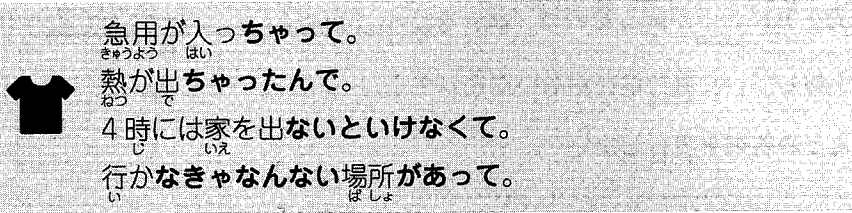 急用が入っちゃって。
きゅうよう はい
熱が出ちゃったんで。
ねつ で
4時には家を出ないといけなくて。
じ いえ
行かなきゃなんない場所があって。
い ばしょ